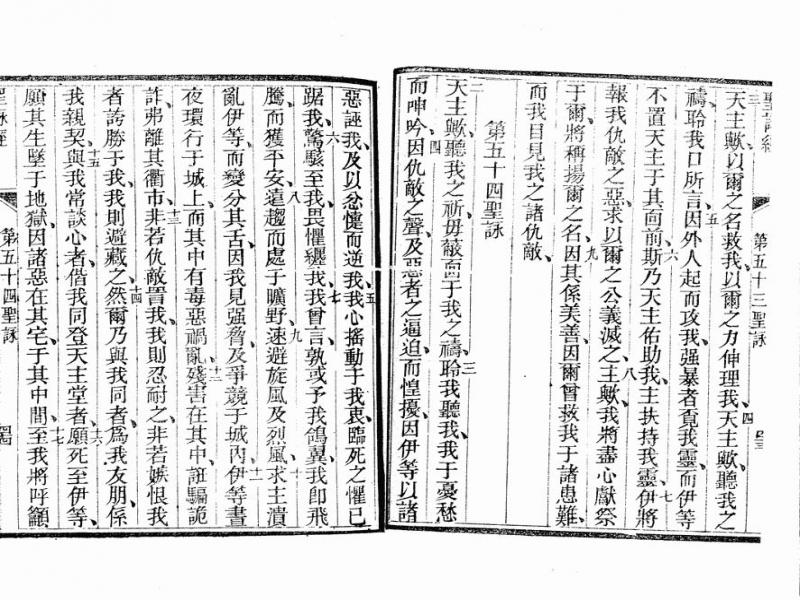 聖詠經
第五十三聖詠
三 天主歟、以爾之名救我、以爾之力伸理我、天主歟、聽我之
四 禱、聆我口所言、因外人起而攻我、强暴者覓我靈、而伊等
五 不置天主于其向前、斯乃天主佑助我、主扶持我靈、伊將
六 七 報我仇敵之惡、求以爾之公義滅之、主歟、我將盡心獻祭
八 于爾、將稱揚爾之名、因其係美善、因爾曾救我于諸患難、
九 而我目見我之諸仇敵、
第五十四聖詠
二 天主歟、聽我之祈、毋蔽面于我之禱、聆我聽我、我于憂愁
三 四 而呻吟、因仇敵之聲、及惡者之逼迫而惶擾、因伊等以諸
惡誣我、及以忿懥而逆我、我心搖動于我衷、臨死之懼已
五 六 踞我、驚駭至我、畏懼纒我、我曾言、孰或予我鴿翼、我卽飛
七 騰而獲平安、遠趨而處于曠野、速避旋風及烈風、求主潰
八 九 十 亂伊等、而變分其舌、因我見强脅及爭競于城內、伊等晝
十一 夜環行于城上、而其中有毒惡禍亂、殘害在其中、誑騙詭
十二 詐弗離其衢市、非若仇敵詈我、我則忍耐之、非若嫉恨我
十三 者誇勝于我、我則避藏之、然爾乃與我同者、爲我友朋、係
十四 我親契、與我常談心者、偕我同登天主堂者、願死至伊等、
十五 十六 願其生墜于地獄、因諸惡在其宅、于其中間、至我將呼籲
十七
聖詠經
第五十四聖詠